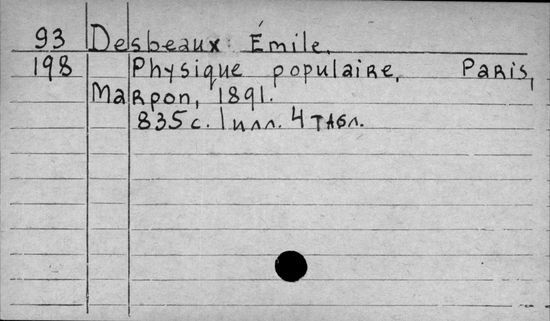 93 Desbeaux Émile.
198 Physique populaire, Paris,
Marpon, 1891.
835 с. 1 илл. 4 табл.